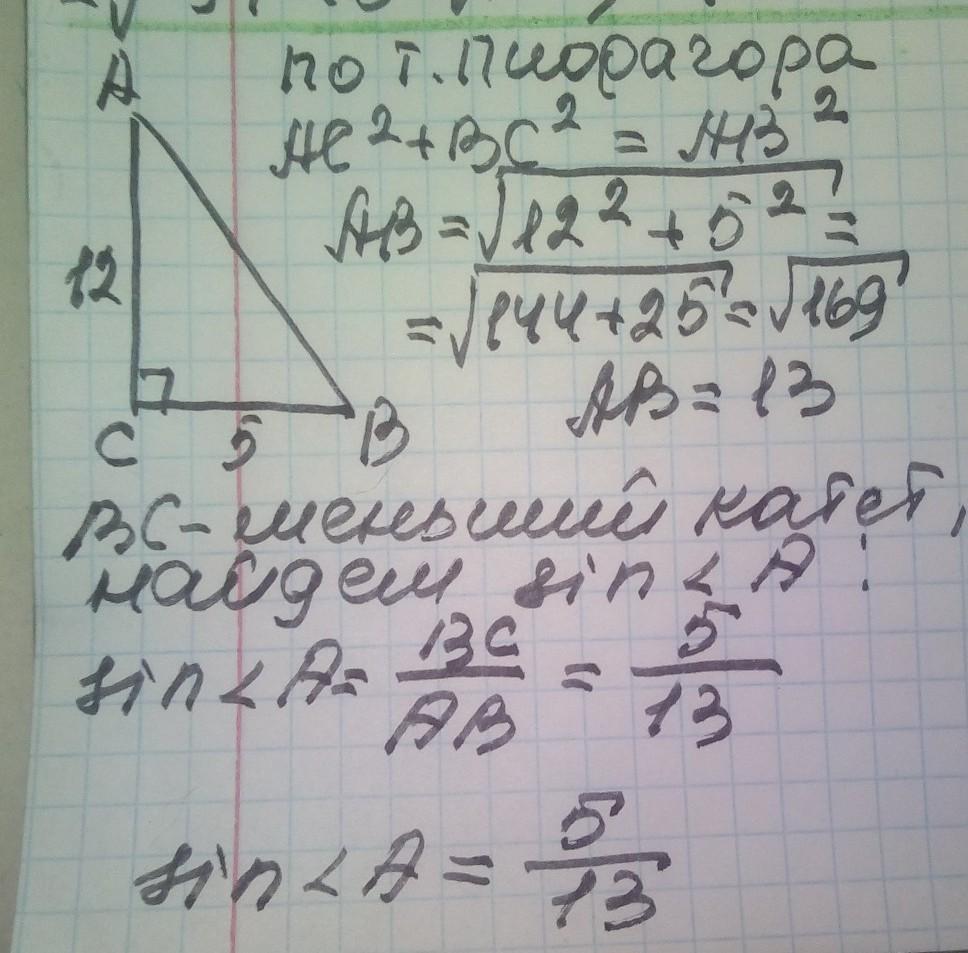 по т. Пифрагора
A
AC² + BC² = AB²
AB = √12² + 5² =
12
= √144+25 = √169
AB = 13
C 5 B
BC - меньший катет,
найдем sin < A :
sin < A = BC/AB = 5/13
sin < A = 5/13